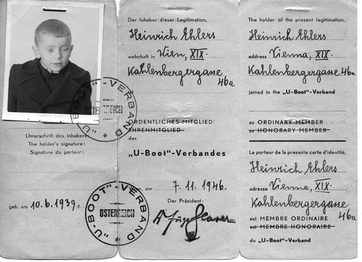 "U-BOOT"-VERBAND
ÖSTERREICH
Unterschrift des Inhabers:
The holder's signature:
Signature du porteur:
geb. am 10.6.1939.
"U-BOOT"-VERBAND
ÖSTERREICH
Der Inhaber dieser Legitimation,
Heinrich Ehlers
wohnhaft in Wien, XIX.
Kahlenbergergasse
46a
ORDENTLICHES MITGLIED
EHRENMITGLIED
des
„U-Boot"-Verbandes
am 7.11.1946.
Der Präsident:
The holder of the present legitimation,
Heinrich Ehlers
address Vienna, XIX.
Kahlenbergergasse 46a
joined in the „U-Boot"-Verband
as ORDINARY MEMBER
as HONORARY MEMBER
Le porteur de la presente carte d'identité,
Heinrich Ehlers
adresse Vienne, XIX.
Kahlenbergergasse
46a
est MEMBRE ORDINAIRE
est MEMBRE HONORAIRE
du „U-Boot"-Verband